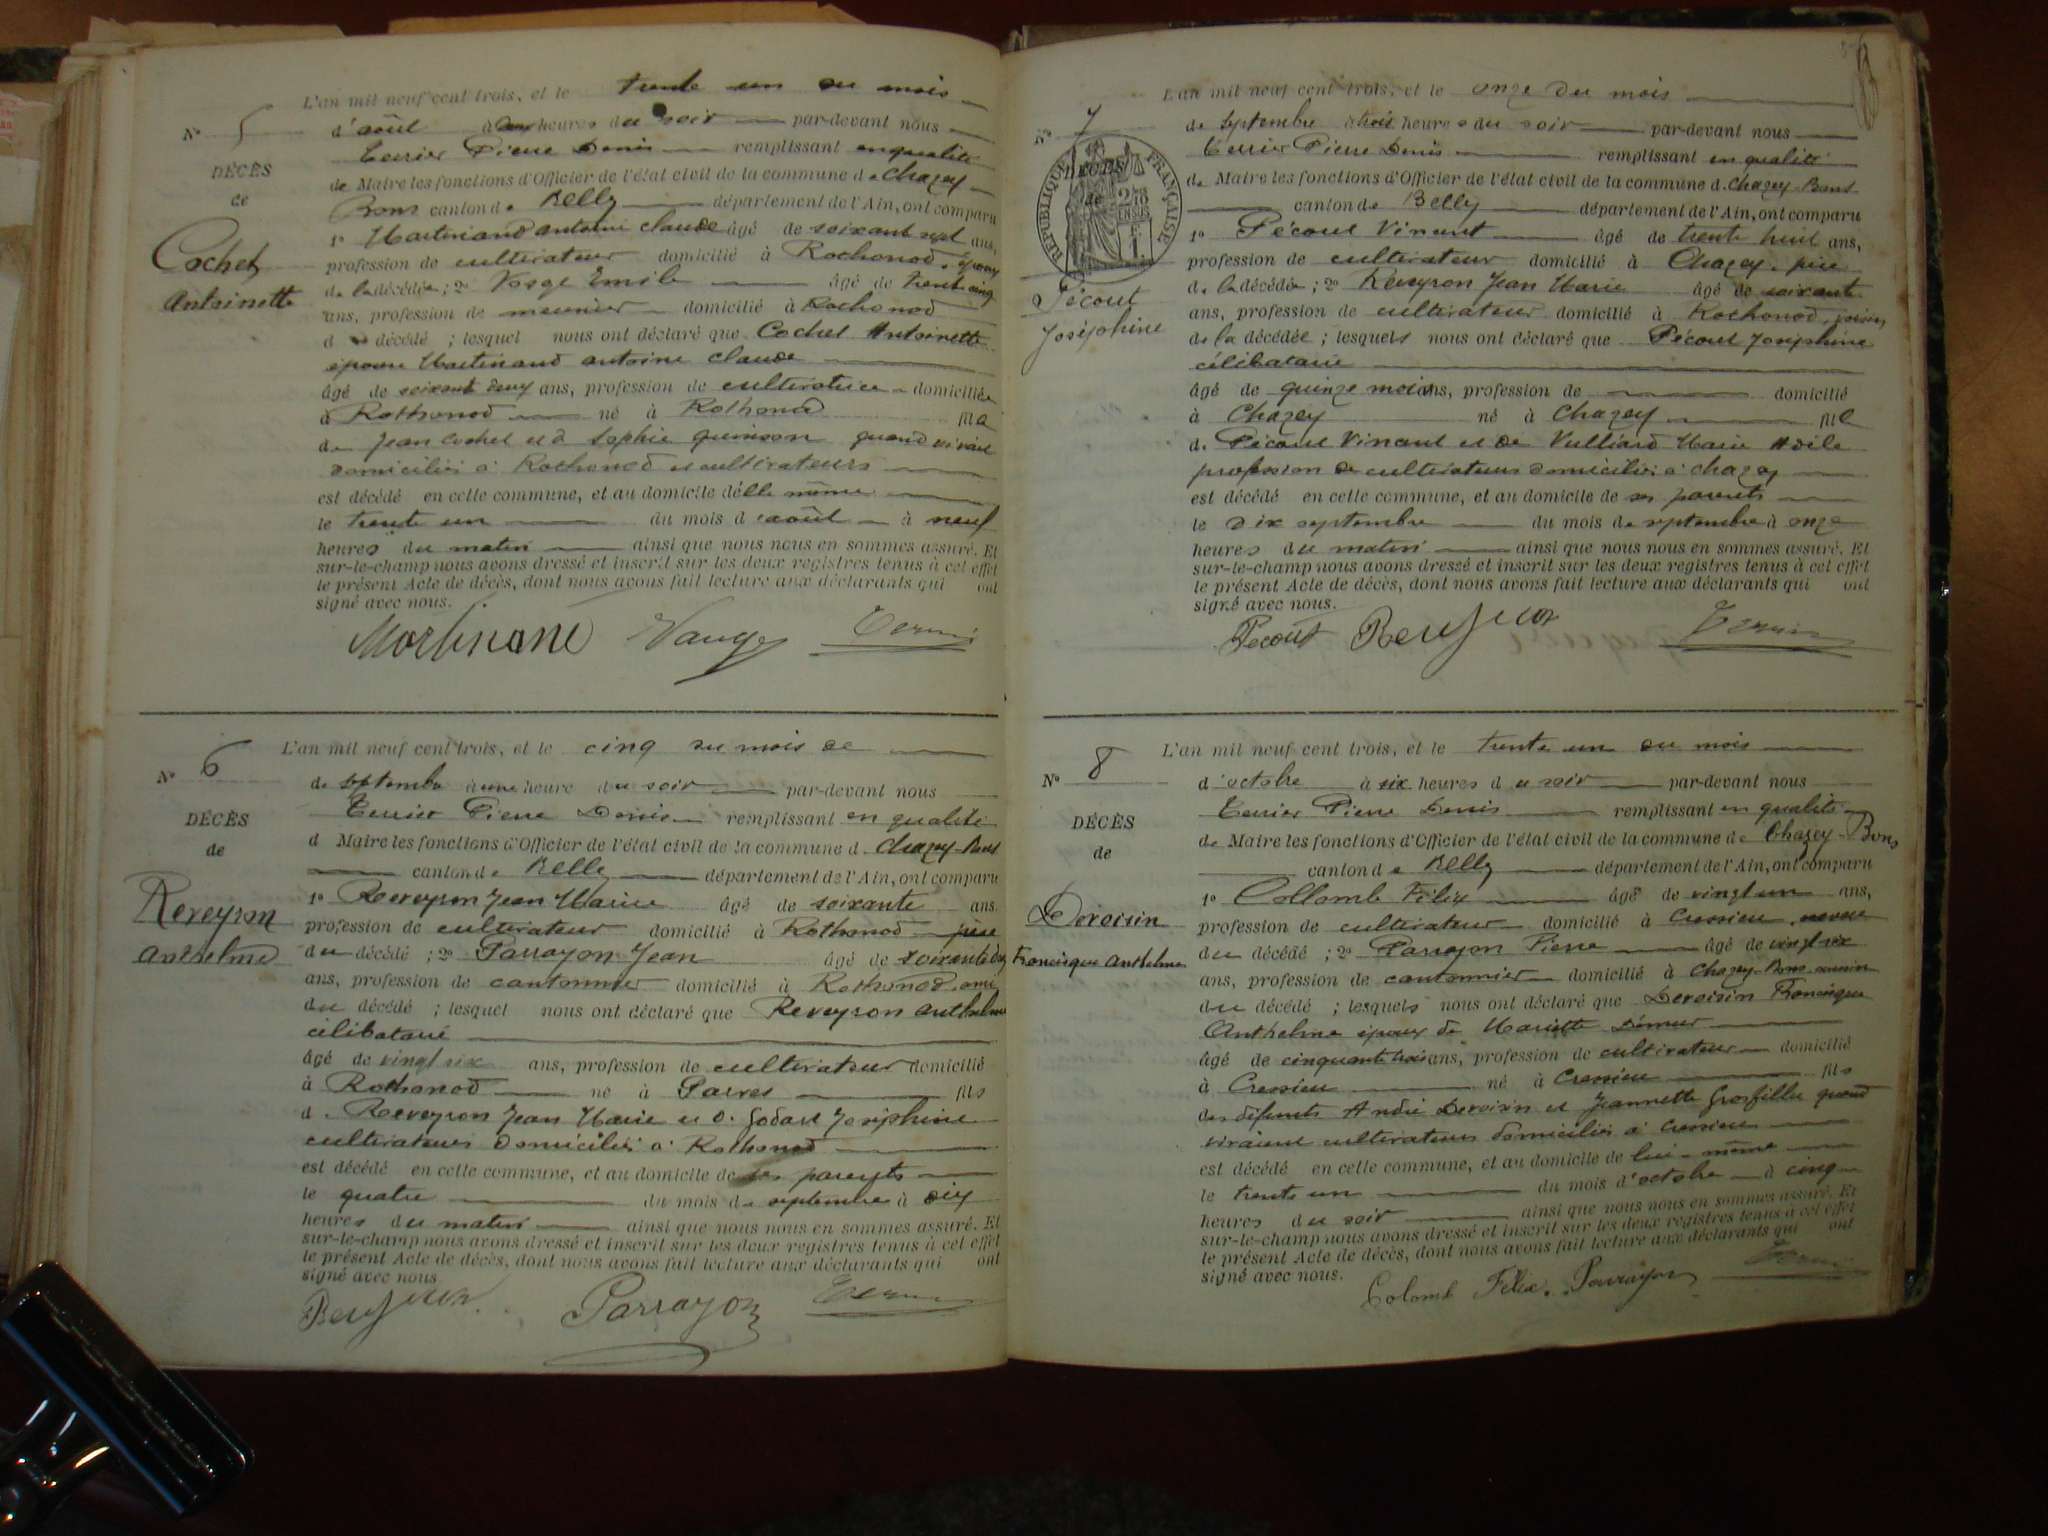 L'an mil neuf cent trois, et le trente un du mois
N° 5 d'août à heures du soir par-devant nous
Terrier Pierre Denis remplissant en qualité
DÉCÈS
de Maire les fonctions d'Officier de l'état civil de la commune de Chazey
de
Bons canton de Belley département de l'Ain, ont comparu
1° Martinand antoine claude âgé de soixante sept ans,
Cochet
profession de cultivateur domicilié à Rothonod, époux
Antoinette
de la décédée; 2° Emile âgé de trente cinq
ans, profession de meunier domicilié à Rothonod
d décédé ; lesquel nous ont déclaré que Cochet Antoinette
épouse Martinand antoine claude
âgé de soixante deux ans, profession de cultivatrice domiciliée
à Rothonod né à Rothonod fille
de Jean Cochet et d Sophie quinson quand vivait
domiciliés à Rothonod et cultivateurs
est décédé en cette commune, et au domicile d'elle même
le trente un du mois d'août à neuf
heures du matin ainsi que nous nous en sommes assuré. Et
sur-le-champ nous avons dressé et inscrit sur les deux registres tenus à cet effet
le présent Acte de décès, dont nous avons fait lecture aux déclarants qui ont
signé avec nous.
Martinand Terrier
L'an mil neuf cent trois, et le cinq du mois de
N° 6
de septembre à une heure du soir par-devant nous
Terrier Pierre Denis remplissant en qualité
DÉCÈS
d Maire les fonctions d'Officier de l'état civil de la commune d. Chazey-Bons
de
canton de Belley département de l'Ain, ont comparu
1° Reveyron Jean Marie âgé de soixante ans
Reveyron
profession de cultivateur domicilié à Rothonod père
anthelme
du décédé ; 2° Parrayon Jean âgé de soixante
ans, profession de cantonnier domicilié à Rothonod, ami
du décédé ; lesquel nous ont déclaré que Reveyron anthelme
célibataire
âgé de vingt six ans, profession de cultivateur domicilié
à Rothonod né à Parves fils
d. Reveyron Jean Marie et d. Godart Joséphine
cultivateurs domiciliés à Rothonod
est décédé en cette commune, et au domicile de ses parents
le quatre du mois de septembre à dix
heures du matin ainsi que nous nous en sommes assuré. Et
sur-le-champ nous avons dressé et inscrit sur les deux registres tenus à cet effet
le présent Acte de décès, dont nous avons fait lecture aux déclarants qui ont
signé avec nous
Reveyron Parrayon Terrier
L'an mil neuf cent trois, et le onze du mois
N° 7
de septembre à trois heures du soir par-devant nous
Terrier Pierre Denis remplissant en qualité
RÉPUBLIQUE FRANÇAISE
DÉCÈS
de
2/10 EN SUS
de Maire les fonctions d'Officier de l'état civil de la commune d. Chazey-Bons
canton de Belley département de l'Ain, ont comparu
1° Pécout Vincent âgé de trente huit ans,
profession de cultivateur domicilié à Chazey, père
Pécout
de la décédée ; 2° Reveyron Jean Marie âgé de soixante
Joséphine
ans, profession de cultivateur domicilié à Rothonod, voisin
de la décédée ; lesquels nous ont déclaré que Pécout Joséphine
célibataire
âgé de quinze mois ans, profession de domicilié
à Chazey né à Chazey fille
d. Pécout Vincent et de Vulliard Marie Adèle
profession de cultivateurs domiciliés à chazey
est décédé en cette commune, et au domicile de ses parents
le dix septembre du mois de septembre à onze
heures du matin ainsi que nous nous en sommes assuré. Et
sur-le-champ nous avons dressé et inscrit sur les deux registres tenus à cet effet
le présent Acte de décès, dont nous avons fait lecture aux déclarants qui ont
signé avec nous.
Pécout Reveyron Terrier
L'an mil neuf cent trois, et le trente un du mois
N° 8
d'octobre à six heures du soir par-devant nous
Terrier Pierre Denis remplissant en qualité
DÉCÈS
de Maire les fonctions d'Officier de l'état civil de la commune de Chazey-Bons
de
canton de Belley département de l'Ain, ont comparu
1° Collomb Félix âgé de vingt un ans,
Devoisin
profession de cultivateur domicilié à Cressieu, neveu
Francisque anthelme
du décédé ; 2° Parrayon Pierre âgé de vingt six
ans, profession de cantonnier domicilié à Chazey-Bons
du décédé ; lesquels nous ont déclaré que Devoisin Francisque
Anthelme époux de Mariette
âgé de cinquante trois ans, profession de cultivateur domicilié
à Cressieu né à Cressieu fils
des défunts André Devoisin et Jeannette Grosfillex quand
vivaient cultivateurs domiciliés à Cressieu
est décédé en cette commune, et au domicile de lui-même
le trente un du mois d'octobre à cinq
heures du soir ainsi que nous nous en sommes assuré. Et
sur-le-champ nous avons dressé et inscrit sur les deux registres tenus à cet effet
le présent Acte de décès, dont nous avons fait lecture aux déclarants qui ont
signé avec nous.
Colomb Félix. Parrayon Terrier